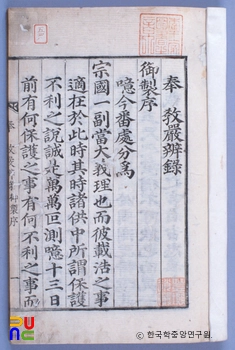 奉 敎嚴辨錄
御製序
噫今番處分爲
宗國一副當大義理也而彼載浩之事
適在於此時其時諸供中所謂保護
不利之說誠是萬萬叵測噫十三日
前有何保護之事有何不利之事而
한국학중앙연구원